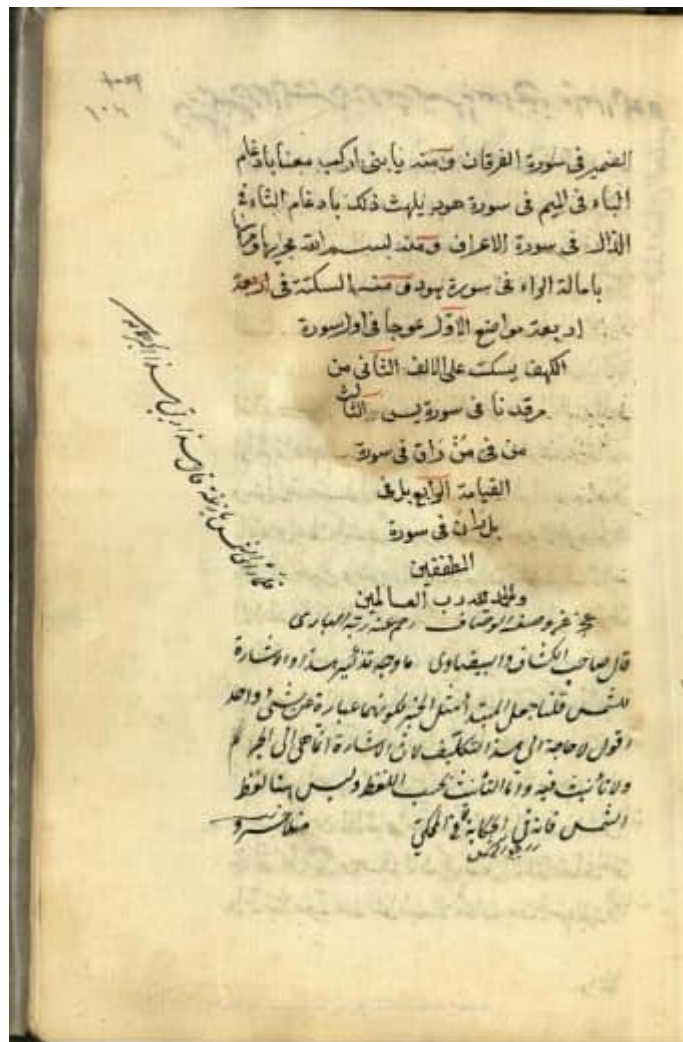 ١٠٨
الضمير فى سورة الفرقان ومنه يا بنى اركب معنا بادغام
الباء فى الميم فى سورة هود يلهث ذلك بادغام الثاء فى
الذال فى سورة الاعراف ومنه بسم الله مجريها ومرسها
بامالة الراء فى سورة هود ومنه السكتة فى اربعة
اربعة مواضع الاول عوجا فى اول سورة
الكهف يسكت على الالف الثانى من
مرقدنا فى سورة يس الثالث
من فى من راق فى سورة
القيامة الرابع بل فى
بل ران فى سورة
المطففين
والحمد لله رب العالمين
قال صاحب الكشاف والبيضاوى ما وجه تذكير هذا والاشارة
للشمس قلنا جعل المبتدأ مثل الخبر لكونهما عبارة عن شئ واحد
اقول لا حاجة الى هذا التكليف لان الاشارة انما هى الى الجرم
ولا تأنيث فيه وانما التأنيث بحسب اللفظ وليس هنا لفظ
الشمس فانه فى الحكاية فى المحكى منلا خسرو
فلما رأى الشمس بازغة قال هذا ربى هذا اكبر